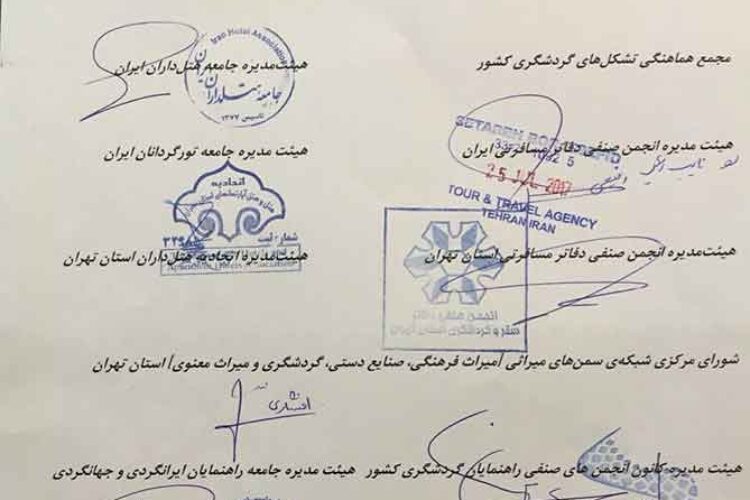 مجمع هماهنگی تشکل‌های گردشگری کشور
هیئت‌مدیره جامعه هتل‌داران ایران
Iran Hotel Association
جامعه هتلداران ایران
تاسیس ۱۳۷۷
هیئت مدیره انجمن صنفی دفاتر مسافرتی ایران
هیئت مدیره جامعه تورگردانان ایران
SETAREH
25 JUL 2017
TOUR & TRAVEL AGENCY
TEHRAN IRAN
اتحادیه
شماره ثبت
هیئت‌مدیره انجمن صنفی دفاتر مسافرتی استان تهران
هیئت‌مدیره اتحادیه هتل‌داران استان تهران
انجمن صنفی دفاتر
سفر و گردشگری استان تهران
شورای مرکزی شبکه‌ی سمن‌های میراثی /میراث فرهنگی، صنایع دستی، گردشگری و میراث معنوی/ استان تهران
هیئت مدیره کانون انجمن های صنفی راهنمایان گردشگری کشور
هیئت مدیره جامعه راهنمایان ایرانگردی و جهانگردی